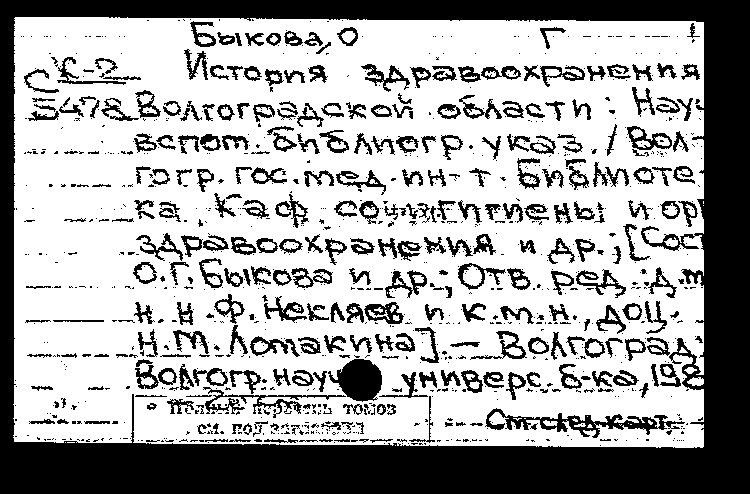 Быкова, О Г
С К-2 История здравоохранения
5478 Волгоградской области : Науч
вспом. библиогр. указ. / Вол-
гогр. гос. мед. ин-т. Библиоте-
ка, Каф. соц. гигиены и орг
здравоохранения и др.; [Сост
О.Г. Быкова и др.; Отв. ред.: д.м.
н. Н.Ф. Некляев и к.м.н., доц.
Н.М. Ломакина]. — Волгоград:
Волгогр. науч универс. б-ка, 198
Полный перечень томов
см. под заглавием
См. след. карт.